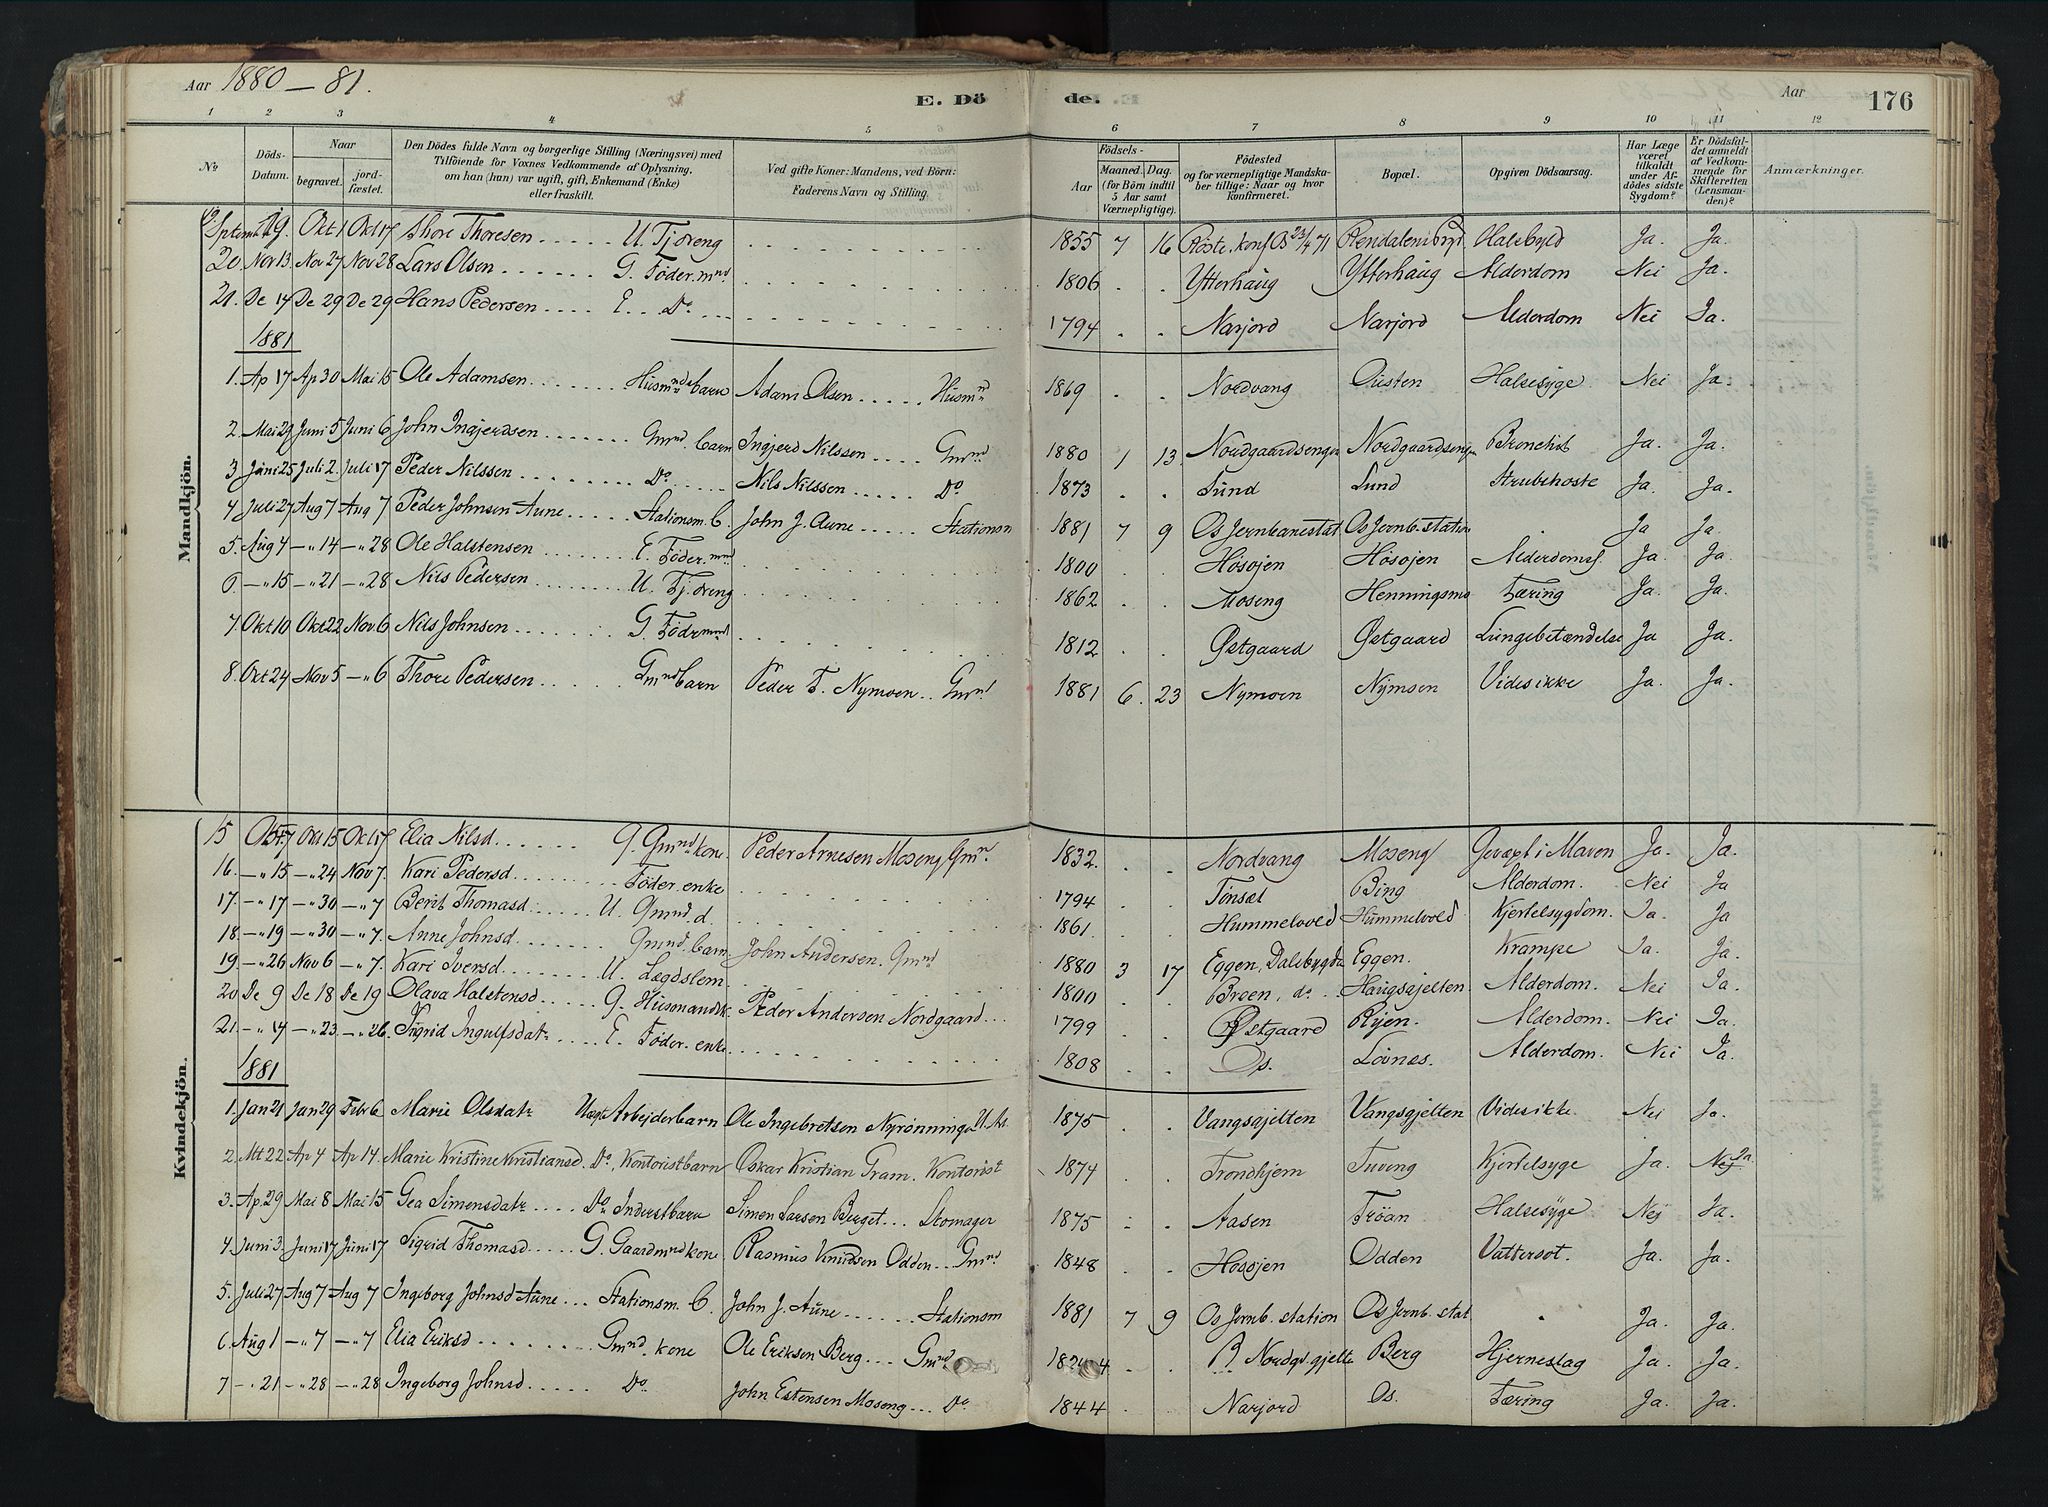 Aar 1880 – 81.
E. Dö de.
Aar
176
1 2 3 4 5 6 7 8 9 10 11 12
No
Döds-Datum.
Naar begravet. jordfæstet.
Den Dödes fulde Navn og borgerlige Stilling (Næringsvei) med Tilföiende for Voxnes Vedkommende af Oplysning, om han (hun) var ugift, gift, Enkemand (Enke) eller fraskilt.
Ved gifte Koner: Mandens, ved Börn: Faderens Navn og Stilling.
Födsels- Aar Maaned. Dag. (for Börn indtil 5 Aar samt Værnepligtige).
Födested og for værnepligtige Mandskaber tillige: Naar og hvor konfirmeret.
Bopæl.
Opgiven Dödsaarsag.
Har Læge været tilkaldt under Afdödes sidste Sygdom?
Er Dödsfaldet anmeldt af Vedkommende for Skifteretten (Lensmanden)?
Anmærkninger.
Mandkjön.
19. Septemb 19. Okt 1 Okt 17 Thore Thoresen U. Tj.dreng 1855 7 16 Röste. konf Os 23/4 71 Rendalen Halsbyld Ja. Ja.
20. Nov 13. Nov 27 Nov 28 Lars Olsen G. Föder.mnd 1806 . . Ytterhaug Ytterhaug Alderdom Nei Ja.
21. De 14 De 29 De 29 Hans Pedersen E. Do 1794 . . Narjord Narjord Alderdom Nei Ja.
1881
1. Ap 17 Ap 30 Mai 15 Ole Adamsen Husmnds barn Adam Olsen Husmn 1869 . . Nordvang Ousten Halsesyge Nei Ja.
2. Mai 29 Juni 5 Juni 6 John Ingjerdsen Gmnd barn Ingjerd Nilssen Gmnd 1880 1 13. Nordgaardsengen Nordgaardsengen Bronchit Ja. Ja.
3. Juni 25 Juli 2. Juli 17 Peder Nilssen Do Nils Nilssen Do 1873 . . Lund Lund Strubehoste Ja. Ja.
4 Juli 27 Aug 7 Aug 7 Peder Johnsen Aune Stationsm. C. John J. Aune Stationsm 1881 7 9 Os Jernbanestat Os Jernb. station . Ja Ja.
5. Aug 4 –"14 –"28 Ole Halstensen E. Föder.mnd 1800 . . Hösöjen Hösöjen Alderdomsf. Ja. Ja.
6. –"15 –"21 –"28 Nils Pedersen U. Tj.dreng 1862 . . Moseng Henningsmo Tæring Ja. Ja.
7. Okt 10 Okt 22 Nov. 6 Nils Johnsen G. Födrmnd 1812 . . Østgaard Østgaard Lungebetændelse Ja Ja.
8. Okt 24 Nov 5 –"6 Thore Pedersen Gmnd barn Peder T. Nymoen Gmnd 1881 6. 23 Nymoen Nymoen Videsikke Ja. Ja.
Kvindekjön.
15 Okt 7 Okt 15 Okt 17 Elia Nilsd G. Gmnd kone. Peder Arnesen Moseng Gmn. 1832. . . Nordvang Moseng Gevæxt i Maven Ja. Ja.
16. –"15 –"24 Nov 7. Kari Pedersd Föder. enke 1794 . . Tönset Bing Alderdom. Nei Ja
17. –"17 –"30 –"7 Berit Thomasd. U. Gmnd. d. 1861. . . Hummelvold Hummelvold Kjertelsygdom. Ja. Ja
18. –"19 –"30 –"7. Anne Johnsd Gmnd. barn John Andersen. Gmnd 1880 3 17 Eggen, Dalsbygda Eggen. Krampe Ja. Ja.
19. –"26 Nov 6 –"7. Kari Iversd U. Legdslem 1800 . . Broen, do Haugsgjelten Alderdom. Nei Ja.
20 De 9 De 18 De 19 Olava Halstensd G. Husmandsk. Peder Andersen Nordgaard 1799 . . Østgaard Ryen. Alderdom. Nei Ja.
21. –"14 –"23. –"26. Sigrid Ingulfsdatr E. Föder. enke 1808 . . Os. Lövnes. Alderdom. Nei Ja.
1881
1. Jan 21 Jan 29 Febr 6 Marie Olsdatr Uægte Arbejderbarn Ole Ingebretsen Nyrönningen U. Ar. 1875 . . Vangsgjelten Vangsgjelten Videsikke Nei Ja.
2. Mt 22 Ap 4 Ap 14. Marie Kristine Kristiansd. Do. Kontoristbarn Oskar Kristian Gram. Kontorist 1874 . . Trondhjem Tuveng Kjertelsyge Ja. Nej Ja
3. Ap. 29 Mai 8 Mai 15 Gea Simensdatr Do Inderstbarn Simen Larsen Berget Skomager 1875 . . Aasen Tröan Halsesyge Nej Ja.
4. Juni 3. Juni 17 Juni 17 Sigrid Thomasd G. Gaardmnd kone Rasmus Knudsen Odden Gmnd 1848 . . Hösöjen Odden Vattersot. Ja. Ja.
5. Juli 27 Aug 7 Aug 7 Ingeborg Johnsd Aune Stationsm. C. John J. Aune Stationsm 1881 7 9 Os Jernb. station Os Jernb. stat . Ja. Ja.
6. Aug 1 –"7 –"7 Elia Eriksd Gmnd. kone Ole Eriksen Berg Gmnd . . Nordgs gjelte Berg Hjerneslag Ja. Ja.
7 –"21 –"28 –"28 Ingeborg Johnsd Do John Estensen Moseng Do 1844 . . Narjord Os. Tæring Ja. Ja.